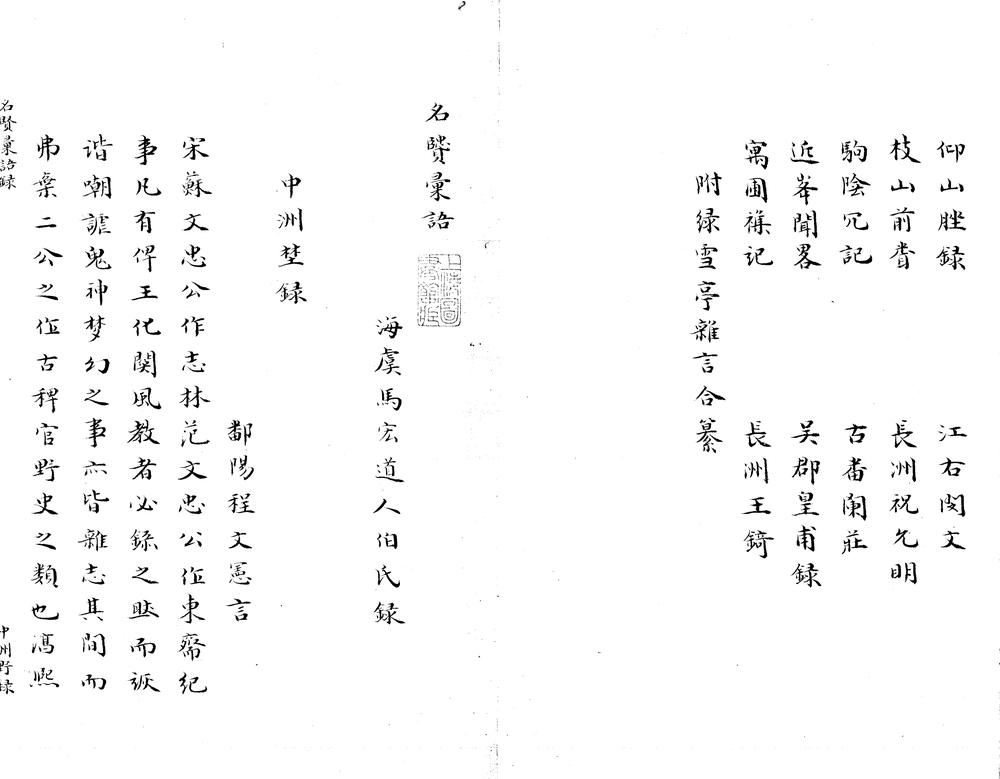 仰山脞録 江右閔文
枝山前聞 長洲祝允明
駒陰冗記 古番闌莊
近峯聞畧 吴郡皇甫録
寓圃襍記 長洲王錡
附绿雪亭雜言合纂
名賢彙語
海虞馬宏道人伯氏録
中洲埜録
鄱陽程文憲言
宋蘇文忠公作志林范文忠公作東齋紀
事凡有俾王化関風教者必錄之然而詼
谐嘲謔鬼神梦幻之事亦皆雜志其間而
弗棄二公之作古稗官野史之類也馮熙
名賢彙語録
中州野録